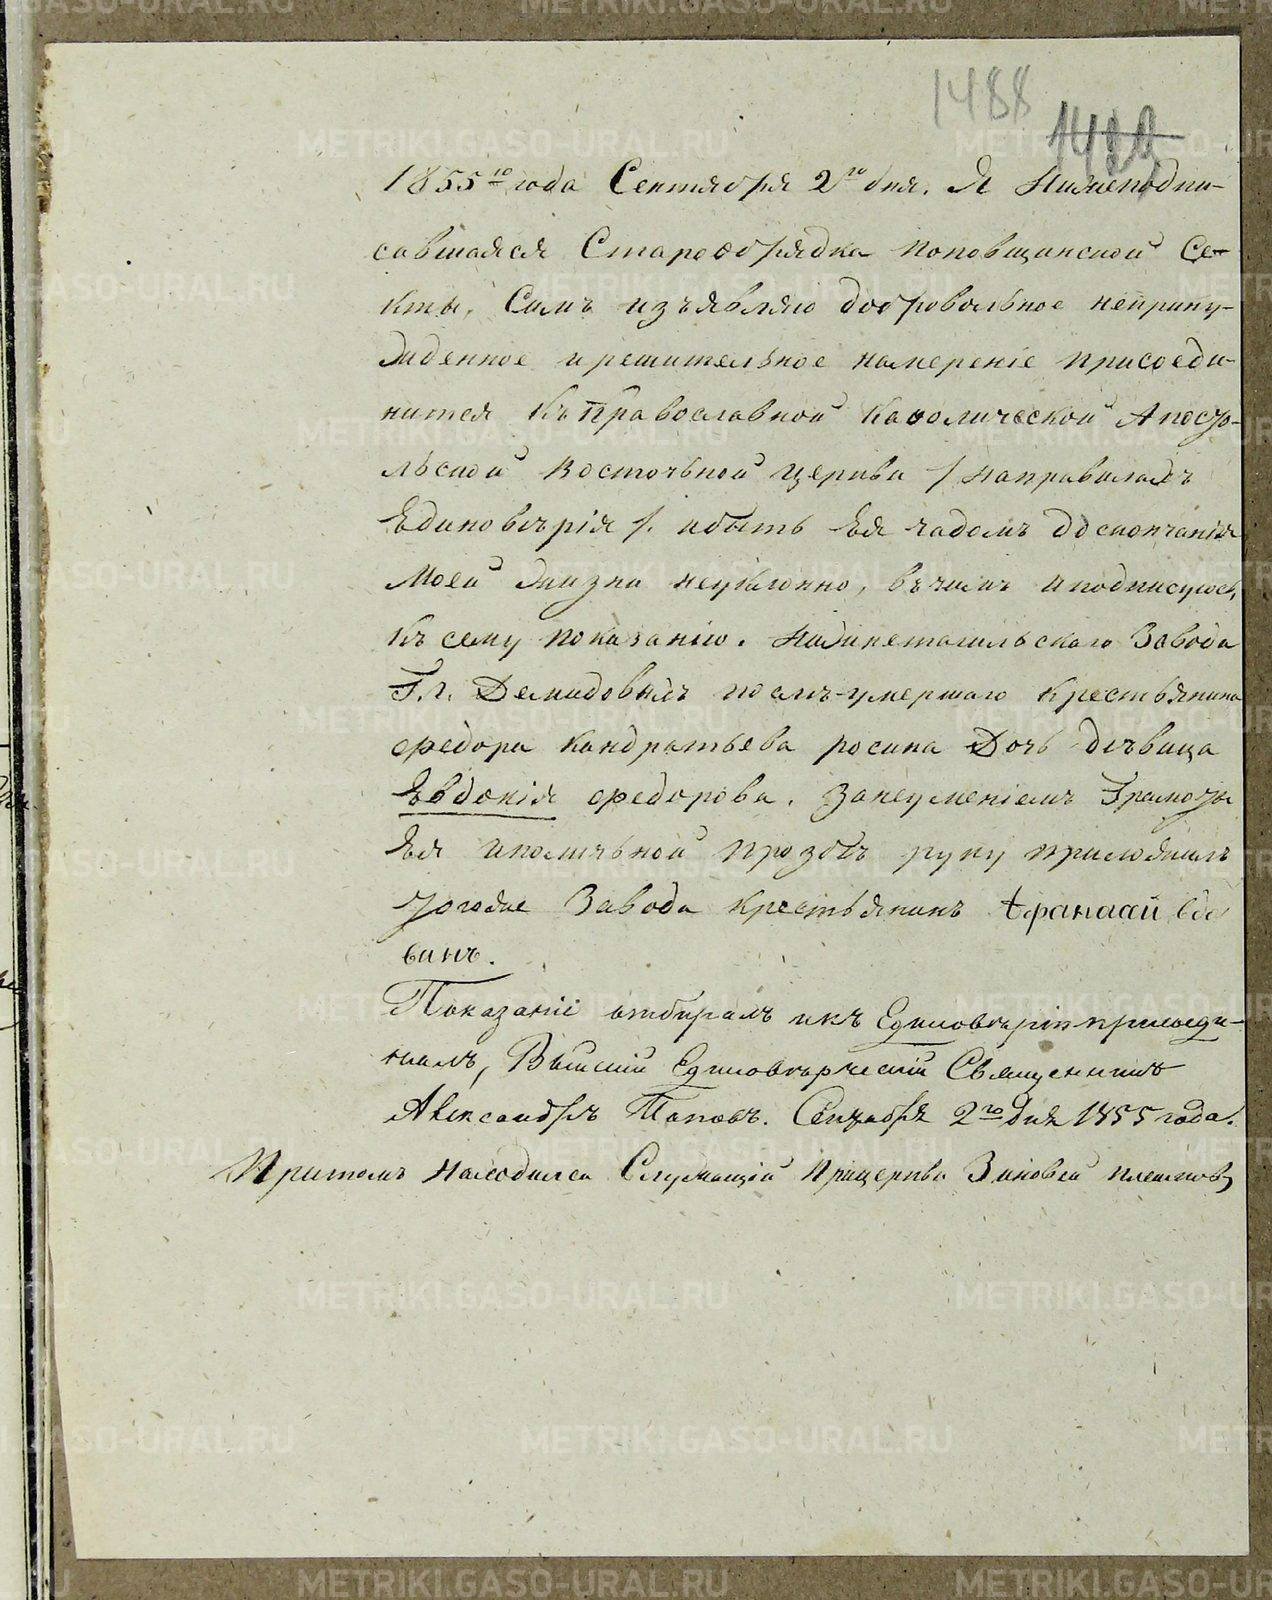 1488
1855го года Сентября 2го дня. Я Нижеподпи-
савшаяся Старообрядка поповщинской Се-
кты, Симъ изъявляю добровольное неприну-
жденное и решительное намереніе присоеди-
нится Къ Православной Каѳолической Апосто-
льской Восточьной церкви / направилахъ
Единоверія /. ибыть Ея чадомъ до скончанія
Моей жизни неуклонно, въ чемъ и подписуюсь,
Къ сему показанію. Нижнетагильскаго Завода
Г.г. Демидовыхъ после умершаго крестьянина
Федора Кондратьева росина Дочь девица
Евдокія Федорова. Занеуменіемъ Грамоты
Ея иполичьной прозбе руку приложилъ
тогоже Завода крестьянинъ Афанасий
винъ.
Показаніе отбиралъ и къ Единоверію присоеди-
нилъ, Выйскій Единоверческій Священникъ
Александръ Поповъ. Сентября 2го дня 1855 года.
Притомъ находился Служащій прицеркви Зиновей
METRIKI.GASO-URAL.RU